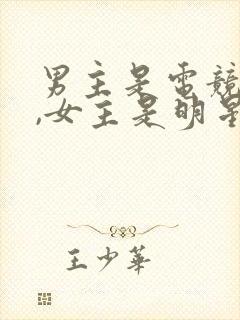 男主是電競
,女主是明星
王少華